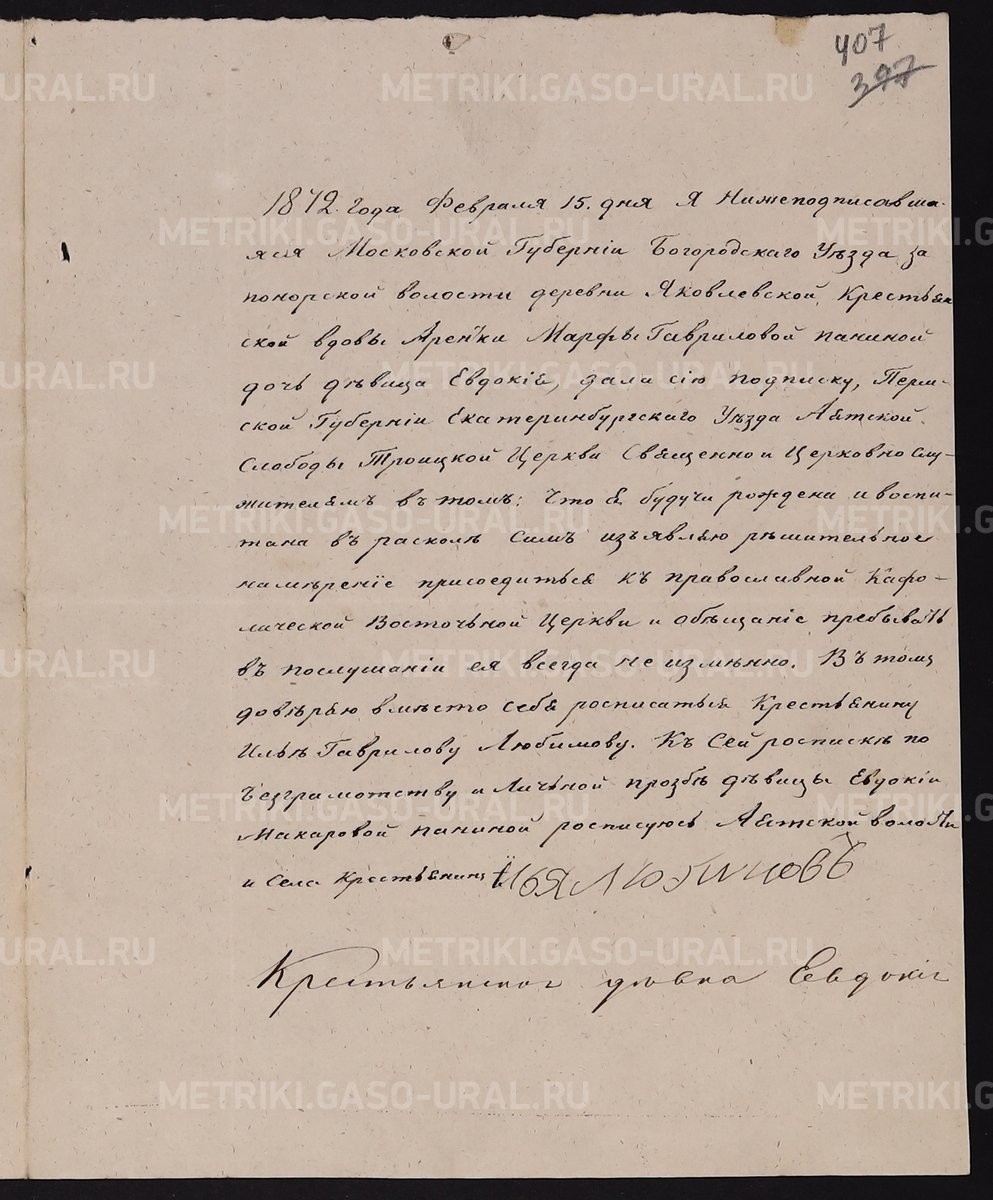 407
397
1872. Года Февраля 15. дня Я Нижеподписавша-
яся Московской Губерніи Богородскаго Уѣзда за
понорской волости деревни Яковлевской, Крестьян
ской вдовы Марфы Гавриловой паниной
дочь дѣвица Евдокія, дала сію подписку, Перм-
ской Губерніи Екатеринбургскаго Уѣзда Аятской
Слободы Троицкой Церкви Священно и Церковно Слу-
жителямъ въ томъ: Что я будучи рождена и воспи-
тана въ расколѣ Симъ изъявляю рѣшительное
намѣреніе присоедиться къ православной Кафо-
лической Восточьной Церкви и обѣщаніе пребывать
въ послушаніи ея всегда не измѣнно. Въ томъ
довѣряю вмѣсто себя росписаться Крестьянину
Ильѣ Гаврилову Любимову. Къ Сей роспискѣ по
Безграмотству и Личьной прозбѣ дѣвицы Евдокіи
Макаровой паниной росписуюсь Аятской волости
и Села Крестьянинъ Илья Любимовъ
Крестьянская дѣвка Евдокія
METRIKI.GASO-URAL.RU